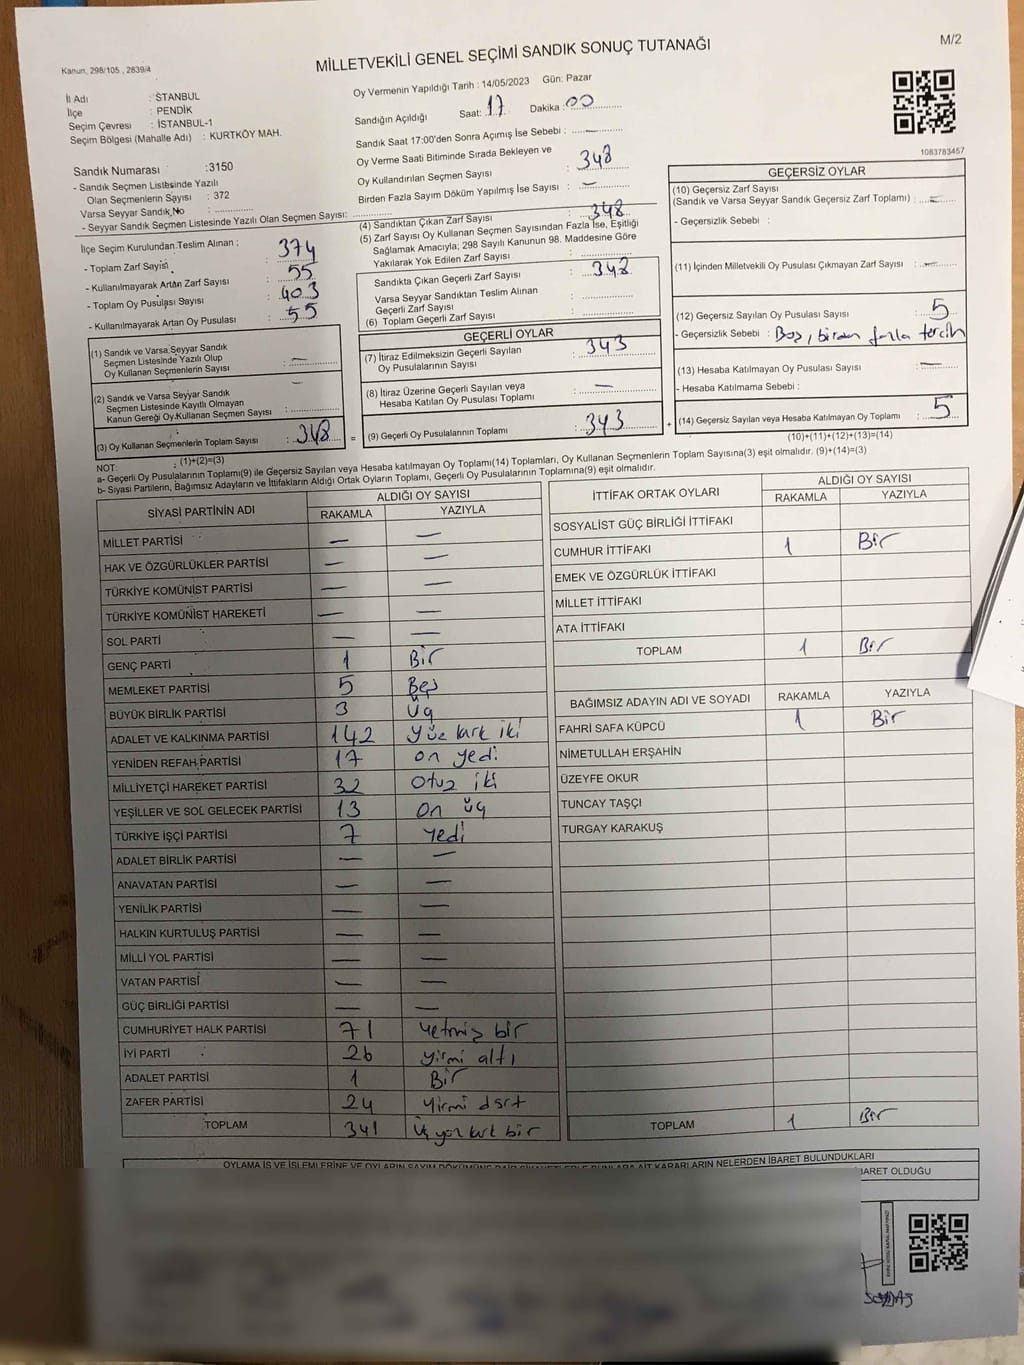 M/2
Kanun: 298/105 , 2839/4
MİLLETVEKİLİ GENEL SEÇİMİ SANDIK SONUÇ TUTANAĞI
İl Adı : İSTANBUL
İlçe : PENDİK
Seçim Çevresi : İSTANBUL-1
Seçim Bölgesi (Mahalle Adı) : KURTKÖY MAH.
Oy Vermenin Yapıldığı Tarih : 14/05/2023 Gün: Pazar
Sandığın Açıldığı Saat: 17 Dakika : 00
Sandık Saat 17:00'den Sonra Açılmış İse Sebebi : —
Oy Verme Saati Bitiminde Sırada Bekleyen ve
Oy Kullandırılan Seçmen Sayısı : 348
Birden Fazla Sayım Döküm Yapılmış İse Sayısı : —
1083783457
Sandık Numarası :3150
- Sandık Seçmen Listesinde Yazılı
Olan Seçmenlerin Sayısı : 372
Varsa Seyyar Sandık No :
- Seyyar Sandık Seçmen Listesinde Yazılı Olan Seçmen Sayısı:
İlçe Seçim Kurulundan Teslim Alınan ;
- Toplam Zarf Sayısı : 374
- Kullanılmayarak Artan Zarf Sayısı : 55
- Toplam Oy Pusulası Sayısı : 403
- Kullanılmayarak Artan Oy Pusulası : 55
(1) Sandık ve Varsa Seyyar Sandık
Seçmen Listesinde Yazılı Olup
Oy Kullanan Seçmenlerin Sayısı : —
(2) Sandık ve Varsa Seyyar Sandık
Seçmen Listesinde Kayıtlı Olmayan
Kanun Gereği Oy Kullanan Seçmen Sayısı : —
(3) Oy Kullanan Seçmenlerin Toplam Sayısı : 348
(1)+(2)=(3)
(4) Sandıktan Çıkan Zarf Sayısı : 348
(5) Zarf Sayısı Oy Kullanan Seçmen Sayısından Fazla İse, Eşitliği
Sağlamak Amacıyla; 298 Sayılı Kanunun 98. Maddesine Göre
Yakılarak Yok Edilen Zarf Sayısı :
Sandıkta Çıkan Geçerli Zarf Sayısı : 348
Varsa Seyyar Sandıktan Teslim Alınan
Geçerli Zarf Sayısı :
(6) Toplam Geçerli Zarf Sayısı :
GEÇERLİ OYLAR
(7) İtiraz Edilmeksizin Geçerli Sayılan
Oy Pusulalarının Sayısı : 343
(8) İtiraz Üzerine Geçerli Sayılan veya
Hesaba Katılan Oy Pusulası Toplamı : —
= (9) Geçerli Oy Pusulalarının Toplamı : 343 +
GEÇERSİZ OYLAR
(10) Geçersiz Zarf Sayısı
(Sandık ve Varsa Seyyar Sandık Geçersiz Zarf Toplamı) : —
- Geçersizlik Sebebi :
(11) İçinden Milletvekili Oy Pusulası Çıkmayan Zarf Sayısı : —
(12) Geçersiz Sayılan Oy Pusulası Sayısı : 5
- Geçersizlik Sebebi : Boş, birden fazla tercih
(13) Hesaba Katılmayan Oy Pusulası Sayısı : —
- Hesaba Katılmama Sebebi :
(14) Geçersiz Sayılan veya Hesaba Katılmayan Oy Toplamı : 5
(10)+(11)+(12)+(13)=(14)
NOT:
a- Geçerli Oy Pusulalarının Toplamı(9) ile Geçersiz Sayılan veya Hesaba katılmayan Oy Toplamı(14) Toplamları, Oy Kullanan Seçmenlerin Toplam Sayısına(3) eşit olmalıdır. (9)+(14)=(3)
b- Siyasi Partilerin, Bağımsız Adayların ve İttifakların Aldığı Ortak Oyların Toplamı, Geçerli Oy Pusulalarının Toplamına(9) eşit olmalıdır.
SİYASİ PARTİNİN ADI ALDIĞI OY SAYISI
RAKAMLA YAZIYLA
MİLLET PARTİSİ — —
HAK VE ÖZGÜRLÜKLER PARTİSİ — —
TÜRKİYE KOMÜNİST PARTİSİ — —
TÜRKİYE KOMÜNİST HAREKETİ — —
SOL PARTİ — —
GENÇ PARTİ 1 Bir
MEMLEKET PARTİSİ 5 Beş
BÜYÜK BİRLİK PARTİSİ 3 Üç
ADALET VE KALKINMA PARTİSİ 142 Yüz kırk iki
YENİDEN REFAH PARTİSİ 17 on yedi
MİLLİYETÇİ HAREKET PARTİSİ 32 Otuz iki
YEŞİLLER VE SOL GELECEK PARTİSİ 13 On üç
TÜRKİYE İŞÇİ PARTİSİ 7 Yedi
ADALET BİRLİK PARTİSİ — —
ANAVATAN PARTİSİ — —
YENİLİK PARTİSİ — —
HALKIN KURTULUŞ PARTİSİ — —
MİLLİ YOL PARTİSİ — —
VATAN PARTİSİ — —
GÜÇ BİRLİĞİ PARTİSİ — —
CUMHURİYET HALK PARTİSİ 71 Yetmiş bir
İYİ PARTİ 26 Yirmi altı
ADALET PARTİSİ 1 Bir
ZAFER PARTİSİ 24 Yirmi dört
TOPLAM 341 Üç yüz kırk bir
İTTİFAK ORTAK OYLARI ALDIĞI OY SAYISI
RAKAMLA YAZIYLA
SOSYALİST GÜÇ BİRLİĞİ İTTİFAKI
CUMHUR İTTİFAKI 1 Bir
EMEK VE ÖZGÜRLÜK İTTİFAKI
MİLLET İTTİFAKI
ATA İTTİFAKI
TOPLAM 1 Bir
BAĞIMSIZ ADAYIN ADI VE SOYADI RAKAMLA YAZIYLA
FAHRİ SAFA KÜPCÜ 1 Bir
NİMETULLAH ERŞAHİN
ÜZEYFE OKUR
TUNCAY TAŞÇI
TURGAY KARAKUŞ
TOPLAM 1 Bir
OYLAMA İŞ VE İŞLEMLERİNE VE OYLARIN SAYIM DÖKÜMÜNE DAİR KARARLARIN NELERDEN İBARET BULUNDUKLARI
İBARET OLDUĞU